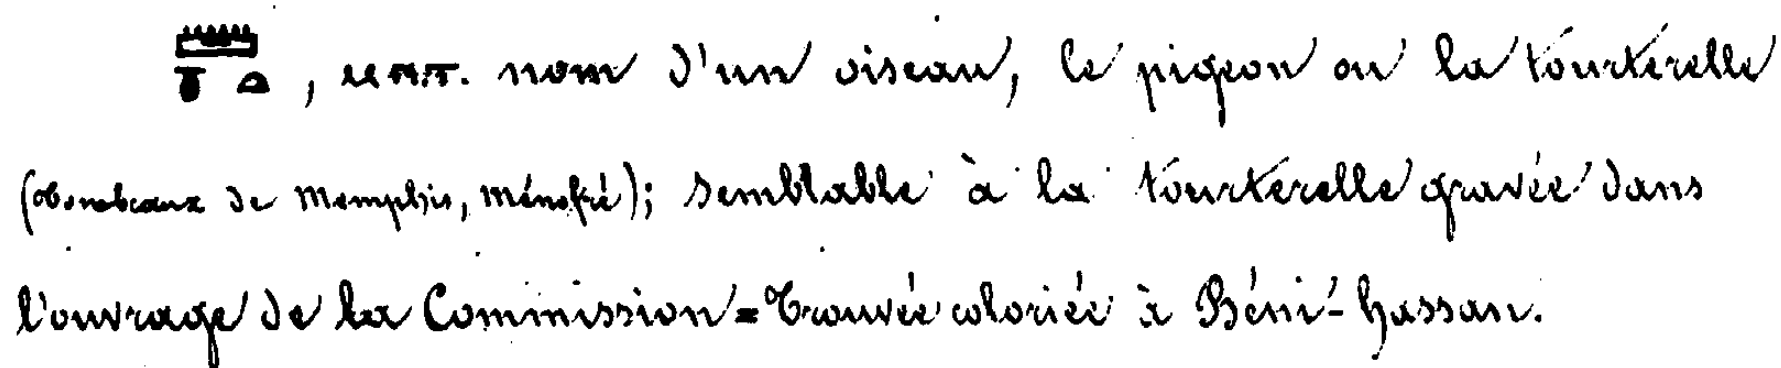 𓏠𓏌𓏏, nom d'un oiseau, le pigeon ou la tourterelle
(Tombeaux de Memphis, Ménofré); semblable à la tourterelle gravée dans
l'ouvrage de la Commission = Trouvée coloriée à Béni-hassan.